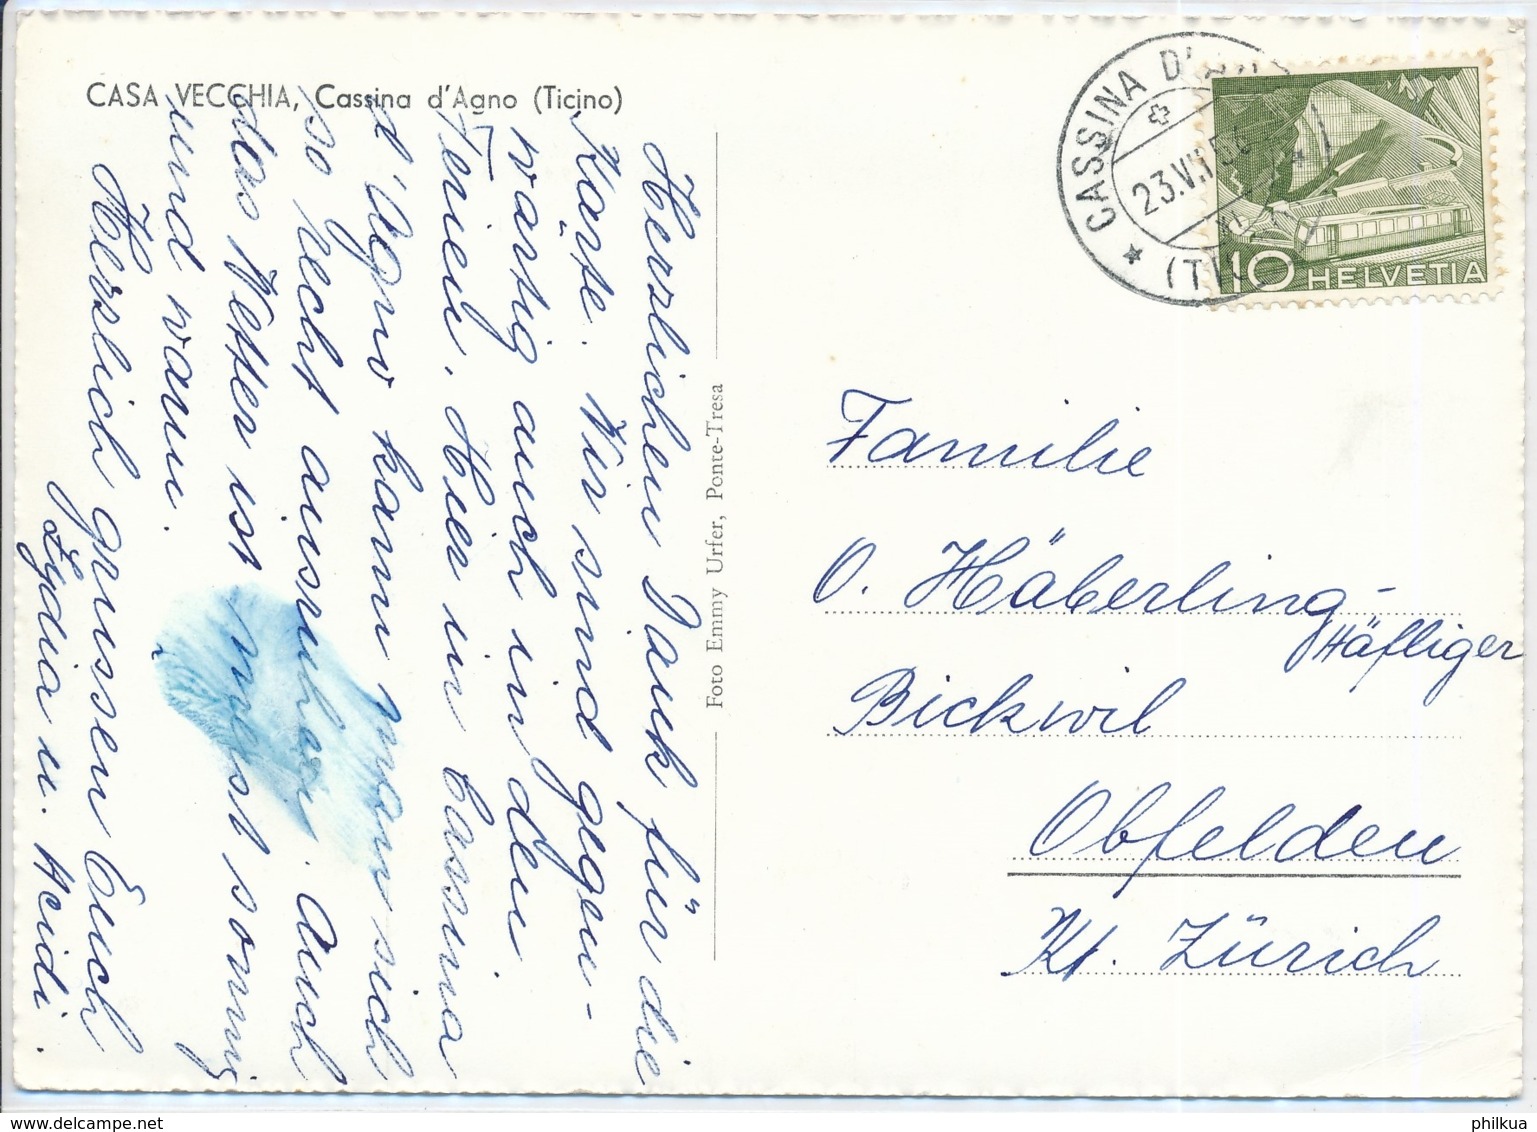 CASA VECCHIA, Cassina d'Agno (Ticino)
Herzlichen Dank für die
Karte. Wir sind gegen-
wärtig auch in den
Ferien. Hier in Cassina
d'Agno kann man sich
so recht ausruhen. Auch
das Wetter ist meist sonnig
und warm.
Herzlich grüssen Euch
Lydia u. Heidi.
Foto Emmy Urfer, Ponte-Tresa
CASSINA D'AGNO
23.VII.54
(TICINO)
10 HELVETIA
Familie
O. Häberling-
Häfliger
Bickwil
Obfelden
Kt. Zürich
www.delcampe.net
philkua